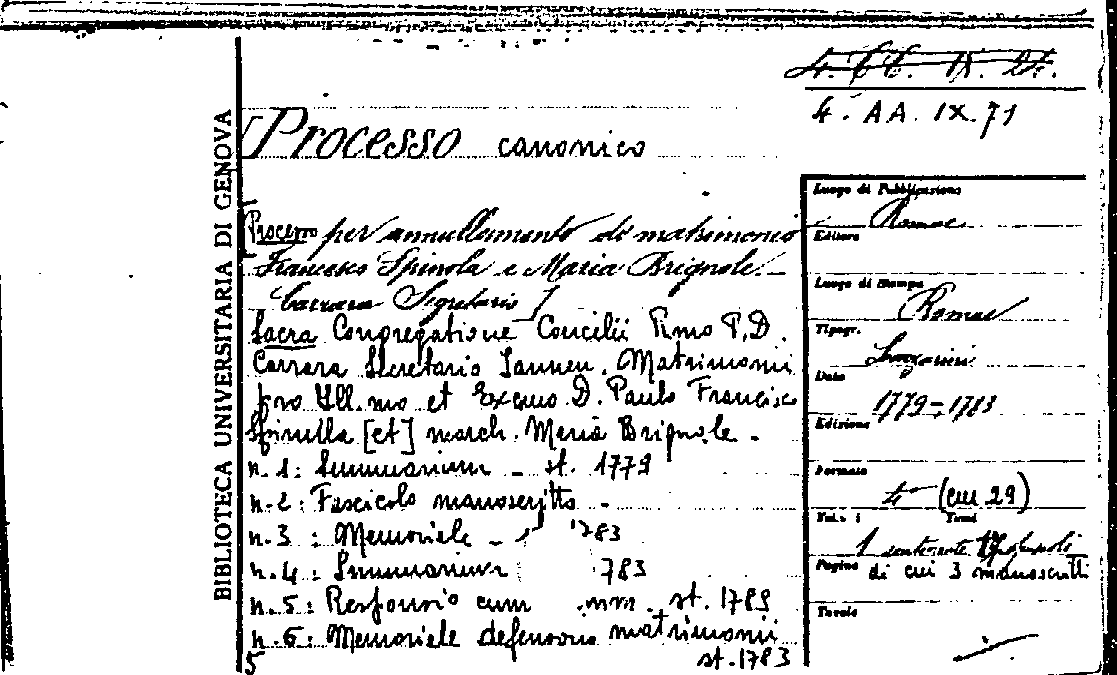 4. AA. IX. 71
BIBLIOTECA UNIVERSITARIA DI GENOVA
[Processo canonico
Processo per annullamento di matrimonio
Francesco Spinola e Maria Brignole. -
Carrara Segretario]
Sacra Congregatione Concilii Rmo P.D.
Carrara Secretario Januen. Matrimonii
pro Ill.mo et Excmo D. Paulo Francisco
Spinulla [et] march. Maria Brignole -
n. 1: Summarium - st. 1779
n. 2: Fascicolo manoscritto -
n. 3: Memoriale - 1783
n. 4: Summarium 783
n. 5: Responsio cum st. 1783
n. 6: Memoriale defensoris matrimonii
st. 1783
5
Luogo di Pubblicazione
Romae
Editore
Luogo di Stampa
Romae
Tipogr.
Lazzarini
Data
1779-1783
Edizione
Formato
4° (cm 29)
Vol. i Tomi
1 contenente
Pagine di cui 3 manoscritti
Tavole